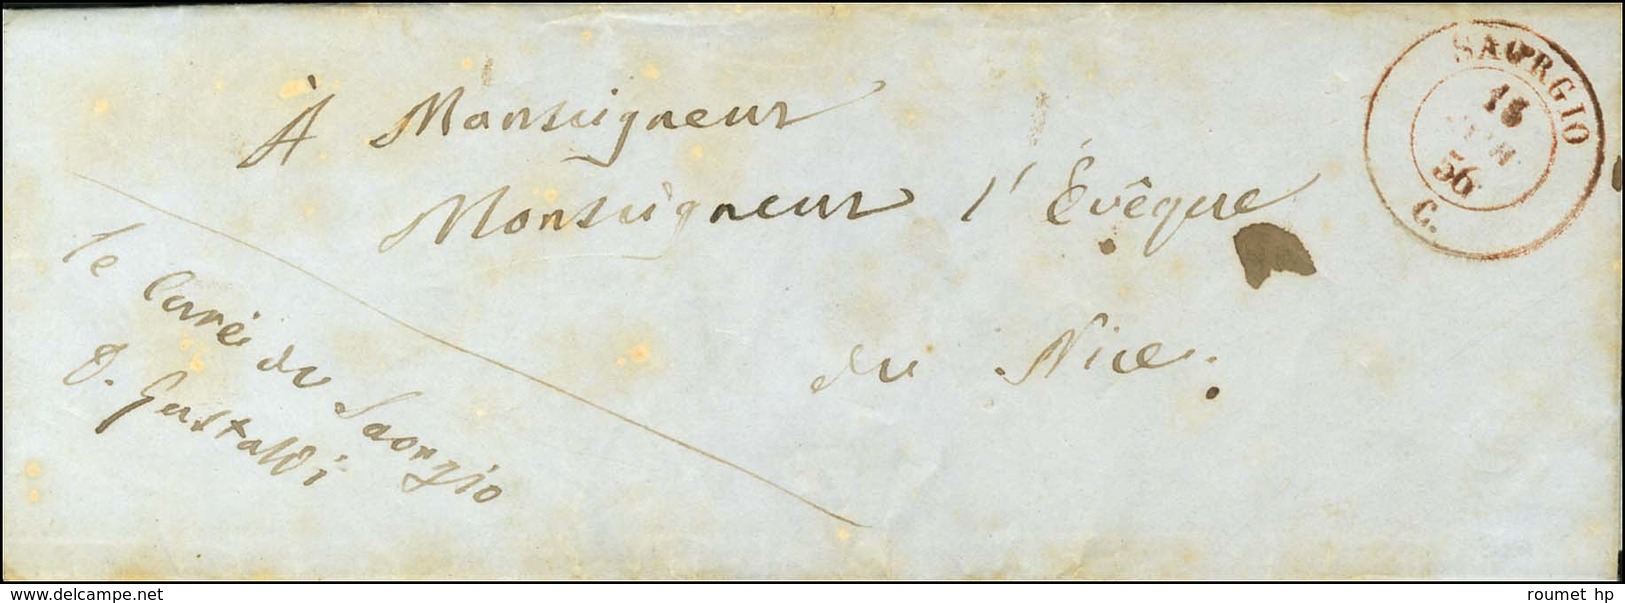 À Monseigneur
Monseigneur l'Évêque
de Nice.
le Curé de Saorgio
D. Gastaldi
SAORGIO
15
56
C.
delcampe.net
roumet hp